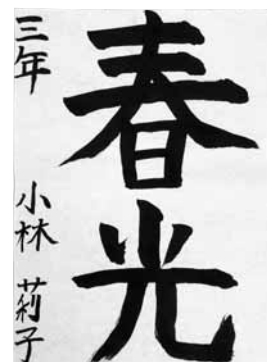 春光
三年 小林 莉子